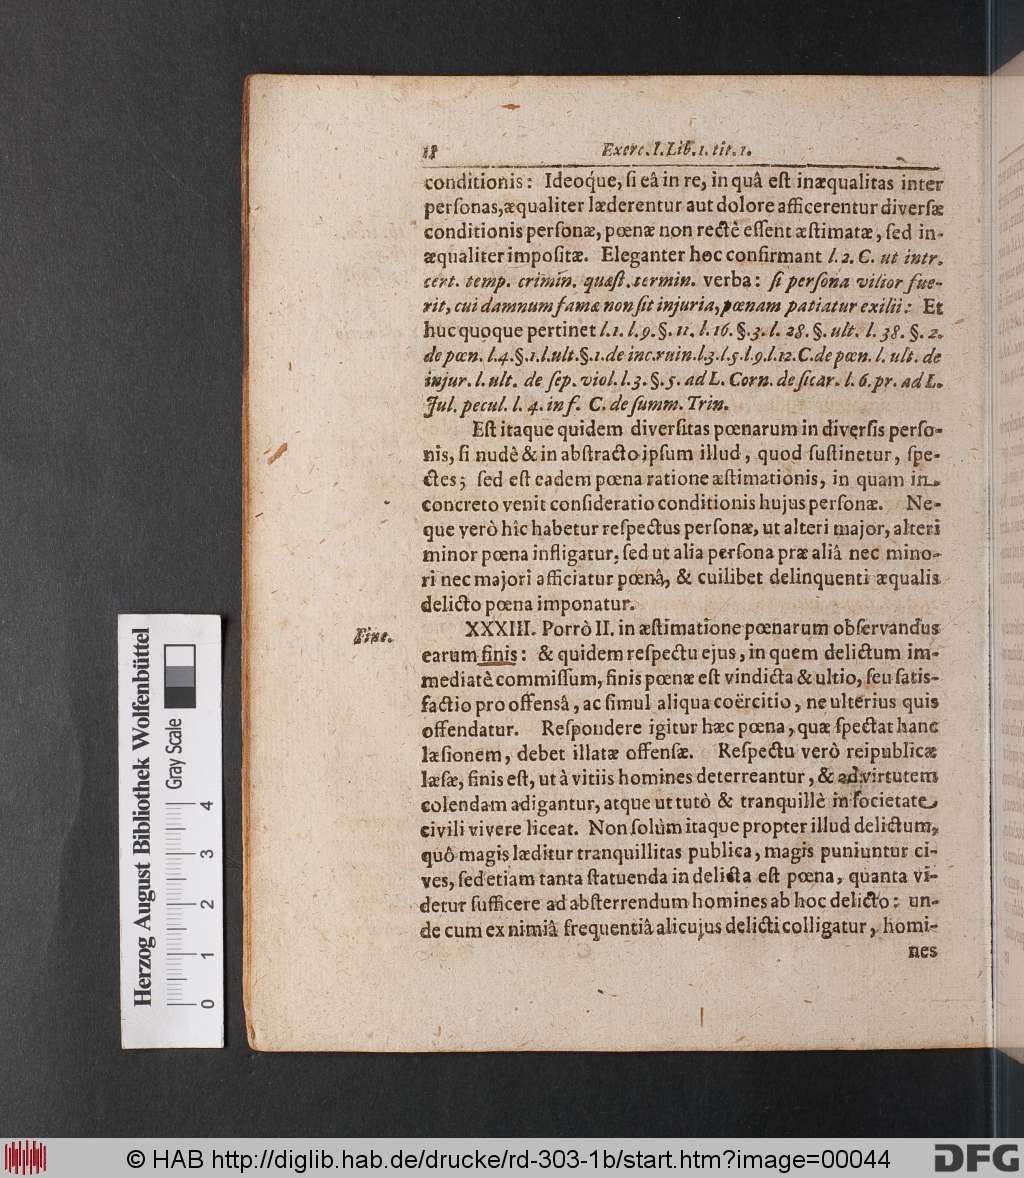 18 Exerc. I. Lib. 1. tit. 1.
conditionis: Ideoq́ue, ſi eâ in re, in quâ eſt inæqualitas inter
perſonas, æqualiter læderentur aut dolore afficerentur diverſæ
conditionis perſonæ, pœnæ non rectè eſſent æſtimatæ, ſed in-
æqualiter impoſitæ. Eleganter hoc confirmant l. 2. C. ut intr.
cert. temp. crimin. quæſt. termin. verba: ſi perſona vilior fue-
rit, cui damnum famæ non ſit injuria, pœnam patiatur exilii: Et
huc quoque pertinet l. 1. l. 9. §. 11. l. 16. §. 3. l. 28. §. ult. l. 38. §. 2.
de pœn. l. 4. §. 1. l. ult. §. 1. de inc. ruin. l. 3. l. 5. l. 9. l. 12. C. de pœn. l. ult. de
injur. l. ult. de ſep. viol. l. 3. §. 5. ad L. Corn. de ſicar. l. 6. pr. ad L.
Jul. pecul. l. 4. in f. C. de ſumm. Trin.
Eſt itaque quidem diverſitas pœnarum in diverſis perſo-
nis, ſi nudè & in abſtracto ipſum illud, quod ſuſtinetur, ſpe-
ctes; ſed eſt eadem pœna ratione æſtimationis, in quam in
concreto venit conſideratio conditionis hujus perſonæ. Ne-
que verò hîc habetur reſpectus perſonæ, ut alteri major, alteri
minor pœna infligatur, ſed ut alia perſona præ aliâ nec mino-
ri nec majori afficiatur pœnâ, & cuilibet delinquenti æqualis
delicto pœna imponatur.
Fine.
XXXIII. Porrò II. in æſtimatione pœnarum obſervandus
earum finis: & quidem reſpectu ejus, in quem delictum im-
mediatè commiſſum, finis pœnæ eſt vindicta & ultio, ſeu ſatis-
factio pro offensâ, ac ſimul aliqua coërcitio, ne ulterius quis
offendatur. Reſpondere igitur hæc pœna, quæ ſpectat hanc
læſionem, debet illatæ offenſæ. Reſpectu verò reipublicæ
læſæ, finis eſt, ut à vitiis homines deterreantur, & ad virtutem
colendam adigantur, atque ut tutò & tranquillè in ſocietate
civili vivere liceat. Non ſolùm itaque propter illud delictum,
quô magis læditur tranquillitas publica, magis puniuntur ci-
ves, ſed etiam tanta ſtatuenda in delicta eſt pœna, quanta vi-
detur ſufficere ad abſterrendum homines ab hoc delicto: un-
de cum ex nimiâ frequentiâ alicujus delicti colligatur, homi-
nes
Herzog August Bibliothek Wolfenbüttel
Gray Scale
0 1 2 3 4
© HAB http://diglib.hab.de/drucke/rd-303-1b/start.htm?image=00044
DFG